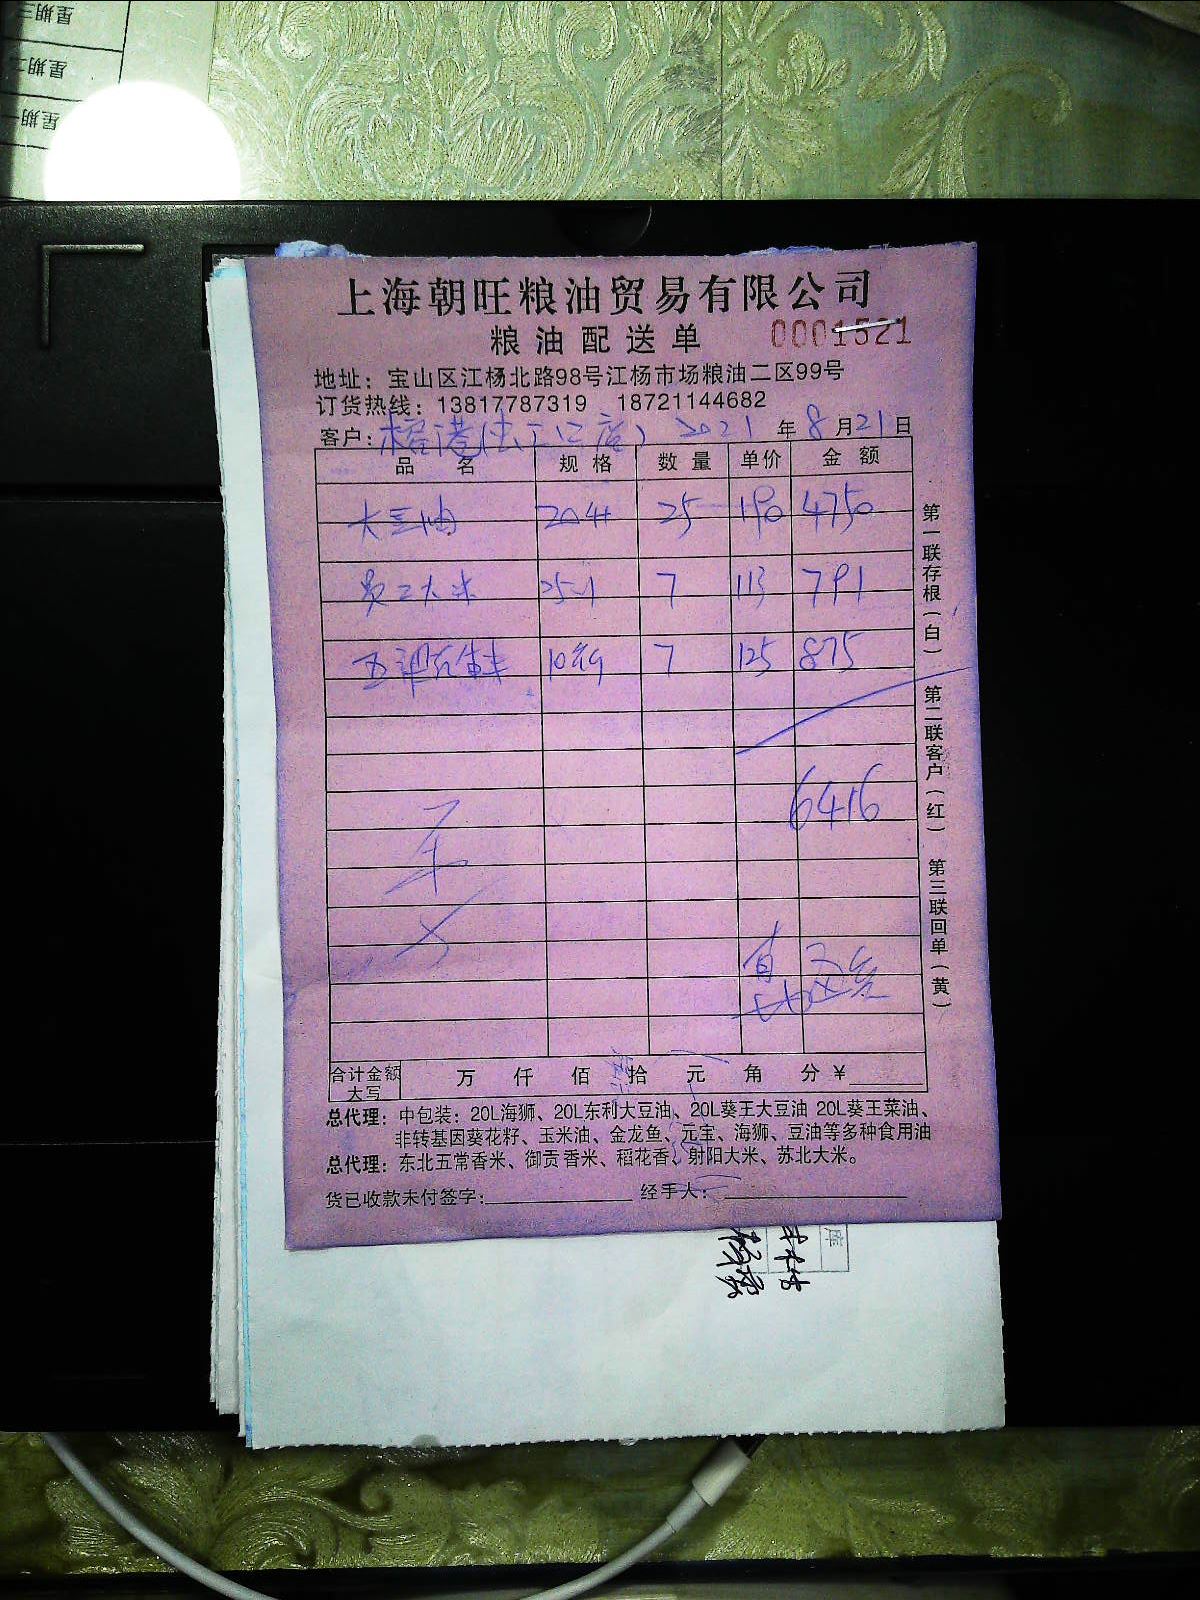 星期三
星期二
星期一
上海朝旺粮油贸易有限公司
粮油配送单 0001521
地址：宝山区江杨北路98号江杨市场粮油二区99号
订货热线：13817787319 18721144682
客户： 2021 年 8 月 21 日
品名 规格 数量 单价 金额
大豆油 25 190 4750
大米 7 113 791
7 125 875
6416
第一联存根（白）
第二联客户（红）
第三联回单（黄）
合计金额大写 万 仟 佰 拾 元 角 分￥
总代理：中包装：20L海狮、20L东利大豆油、20L葵王大豆油 20L葵王菜油、
非转基因葵花籽、玉米油、金龙鱼、元宝、海狮、豆油等多种食用油
总代理：东北五常香米、御贡香米、稻花香、射阳大米、苏北大米。
货已收款未付签字： 经手人：
库